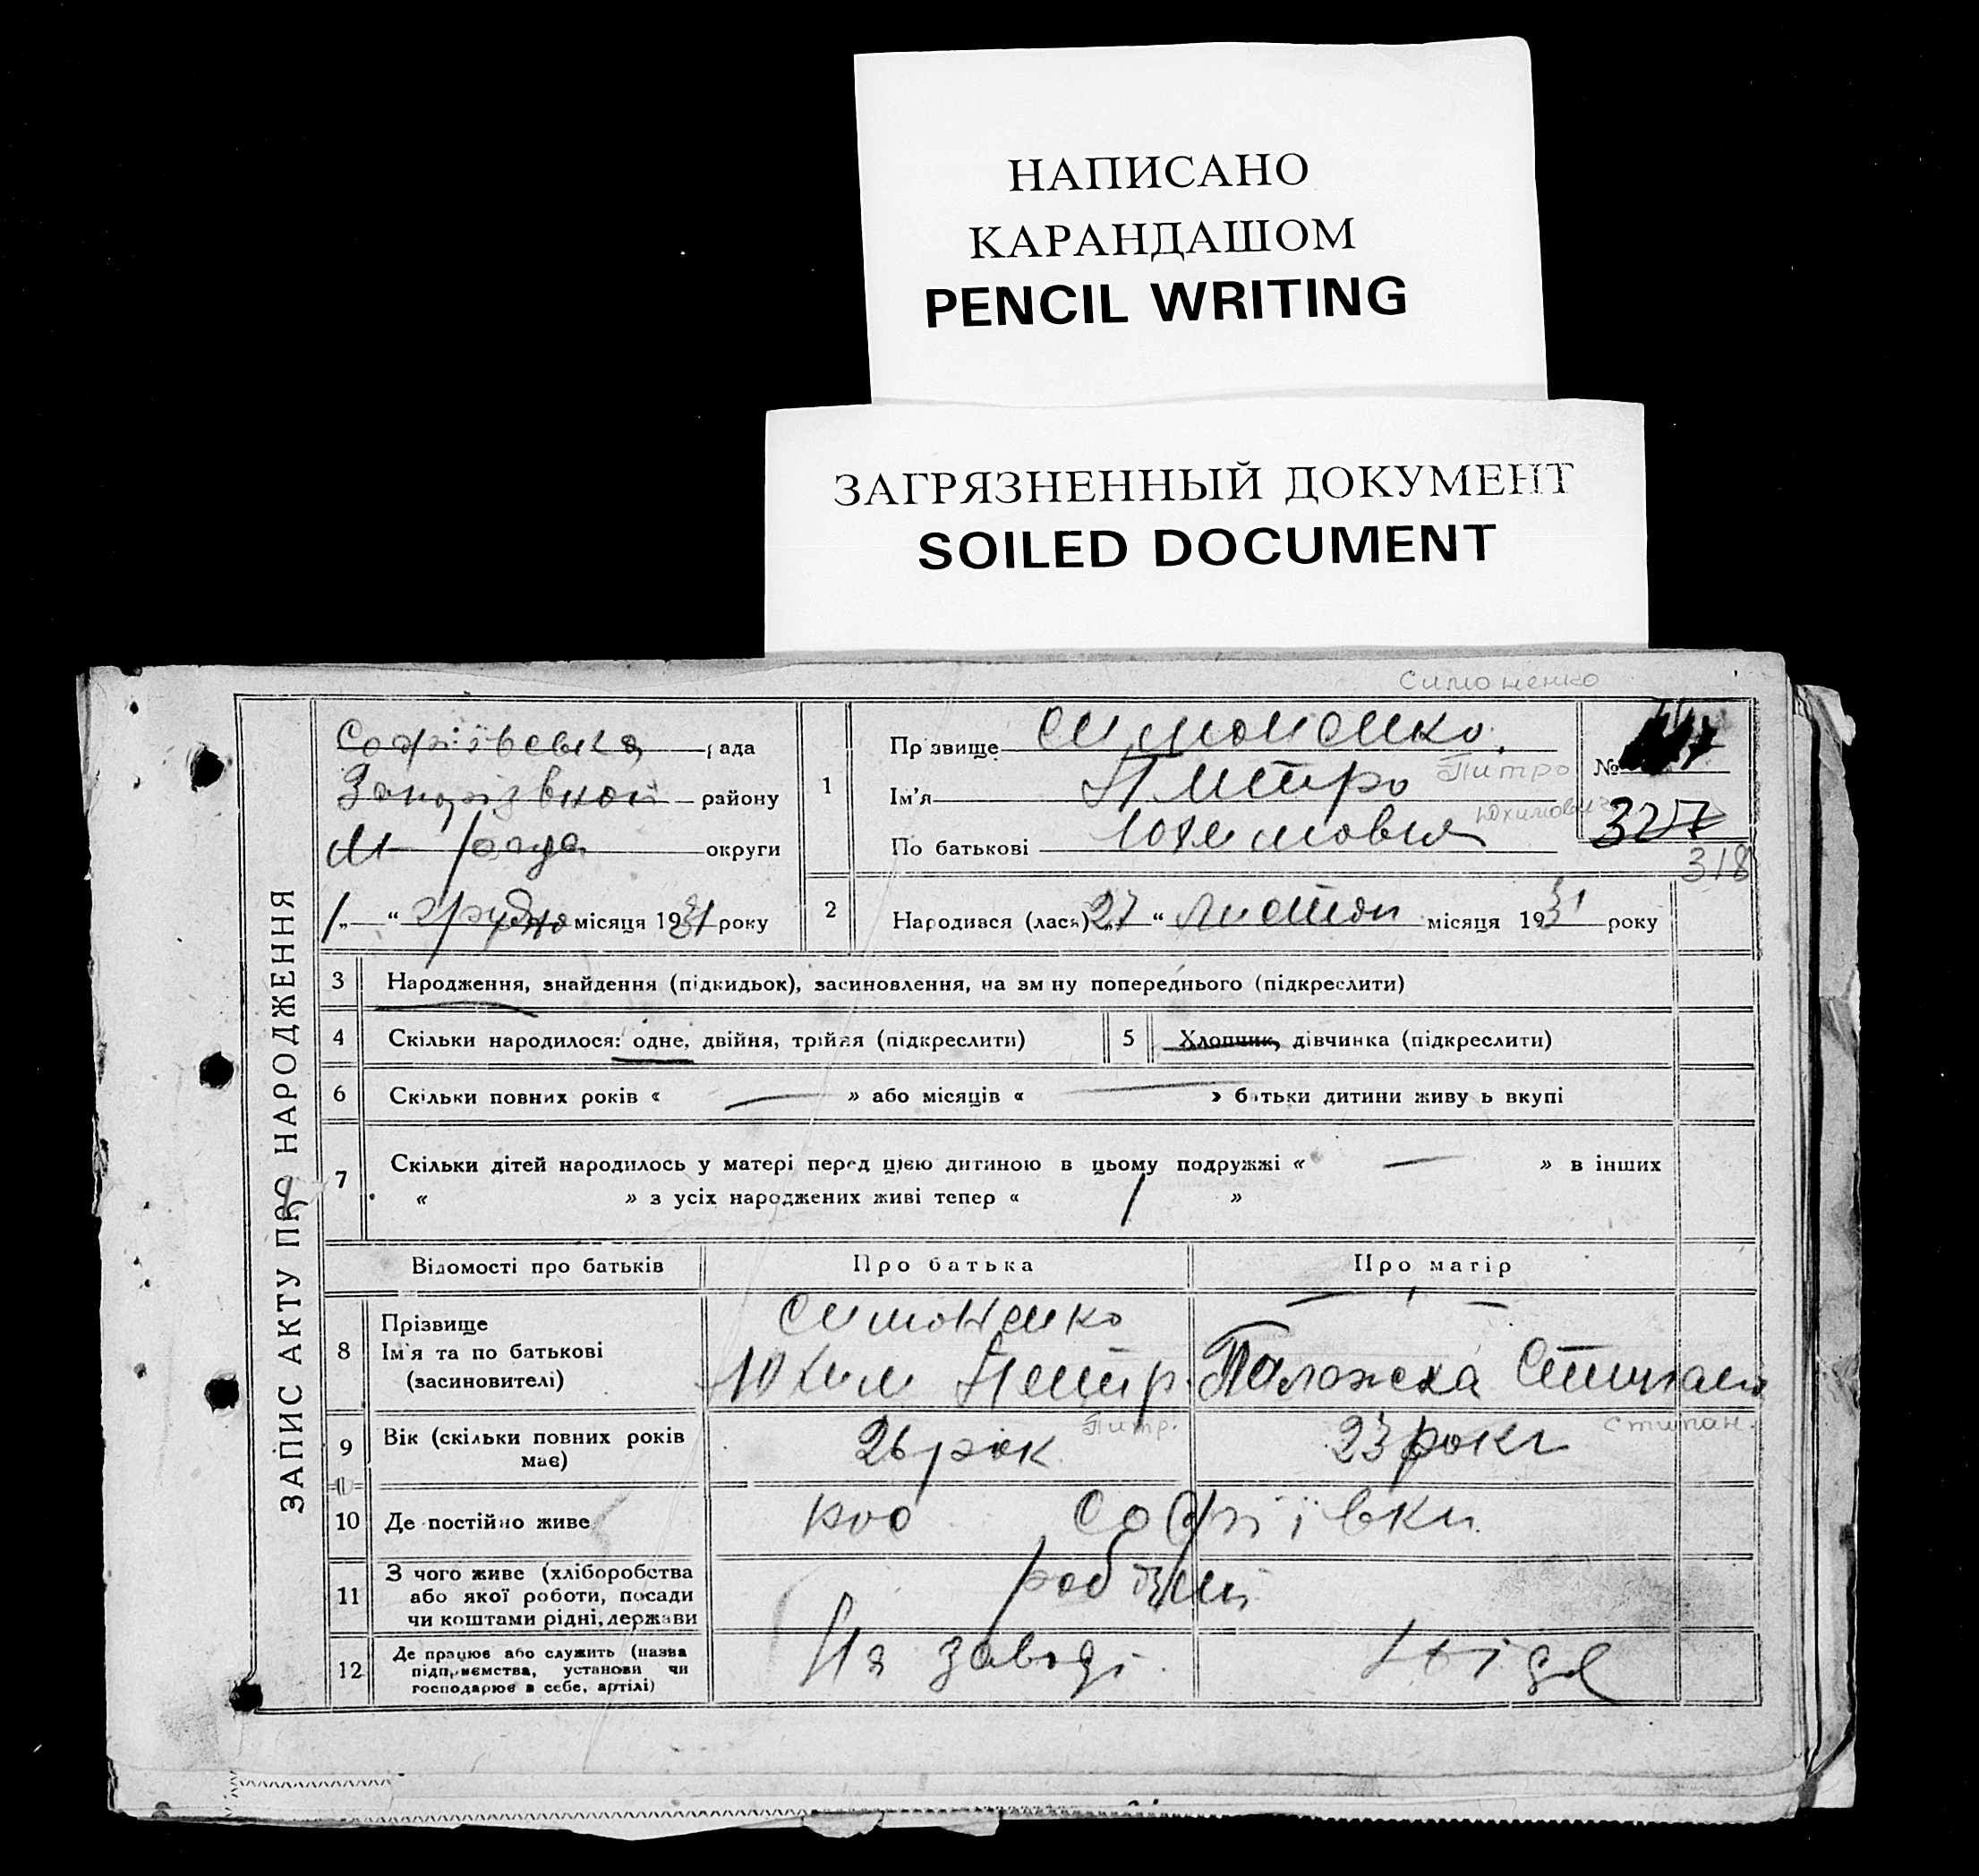 НАПИСАНО
КАРАНДАШОМ
PENCIL WRITING
ЗАГРЯЗНЕННЫЙ ДОКУМЕНТ
SOILED DOCUMENT
Симоненко
ЗАПИС АКТУ ПРО НАРОДЖЕННЯ
Софіївська рада
району
М рада округи
1 „ “ грудня місяця 1931 року
1
Прізвище Симоненко.
Ім'я Питро Питро
По батькові Юхимович Юхимович
№
327
318
2 Народився (лася) 27 “ листоп місяця 1931 року
3 Народження, знайдення (підкидьок), засиновлення, на зм ну попереднього (підкреслити)
4 Скільки народилося: одне, двійня, трійня (підкреслити) 5 Хлопчик, дівчинка (підкреслити)
6 Скільки повних років « — » або місяців « — » батьки дитини живу ь вкупі
7 Скільки дітей народилось у матері перед цією дитиною в цьому подружжі « — » в інших
« » з усіх народжених живі тепер « 1 »
Відомості про батьків Про батька Про матір
8 Прізвище
Ім'я та по батькові
(засиновителі)
Симоненко
Юхим Петр.
Стипан
9 Вік (скільки повних років
має)
26 рок Питр.
23 роки Стипан.
10 Де постійно живе Софіївки
11 З чого живе (хліборобства
або якої роботи, посади
чи коштами рідні, держави
робочий
12 Де працює або служить (назва
підприємства, установи чи
господарює в себе, артілі)
На заводі.